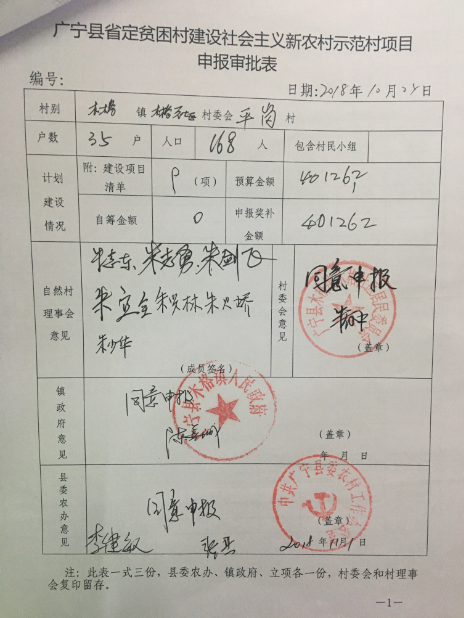 广宁县省定贫困村建设社会主义新农村示范村项目
申报审批表
编号：
日期：2018年10月29日
村别 木格 镇 村委会 平岗 村
户数 35 户 人口 168 人 包含村民小组
计划建设情况
附：建设项目清单 9（项） 预算金额 401262
自筹金额 0 申报奖补金额 401262
自然村理事会意见
（成员签名）
村委会意见
同意申报
（盖章）
镇政府意见
同意申报
广宁县木格镇人民政府
（盖章）
年 月 日
县委农办意见
同意申报
李健敏
中共广宁县委农村工作
（盖章）
2018年11月1日
注：此表一式三份，县委农办、镇政府、立项各一份，村委会和村理事
会复印留存。
—1—